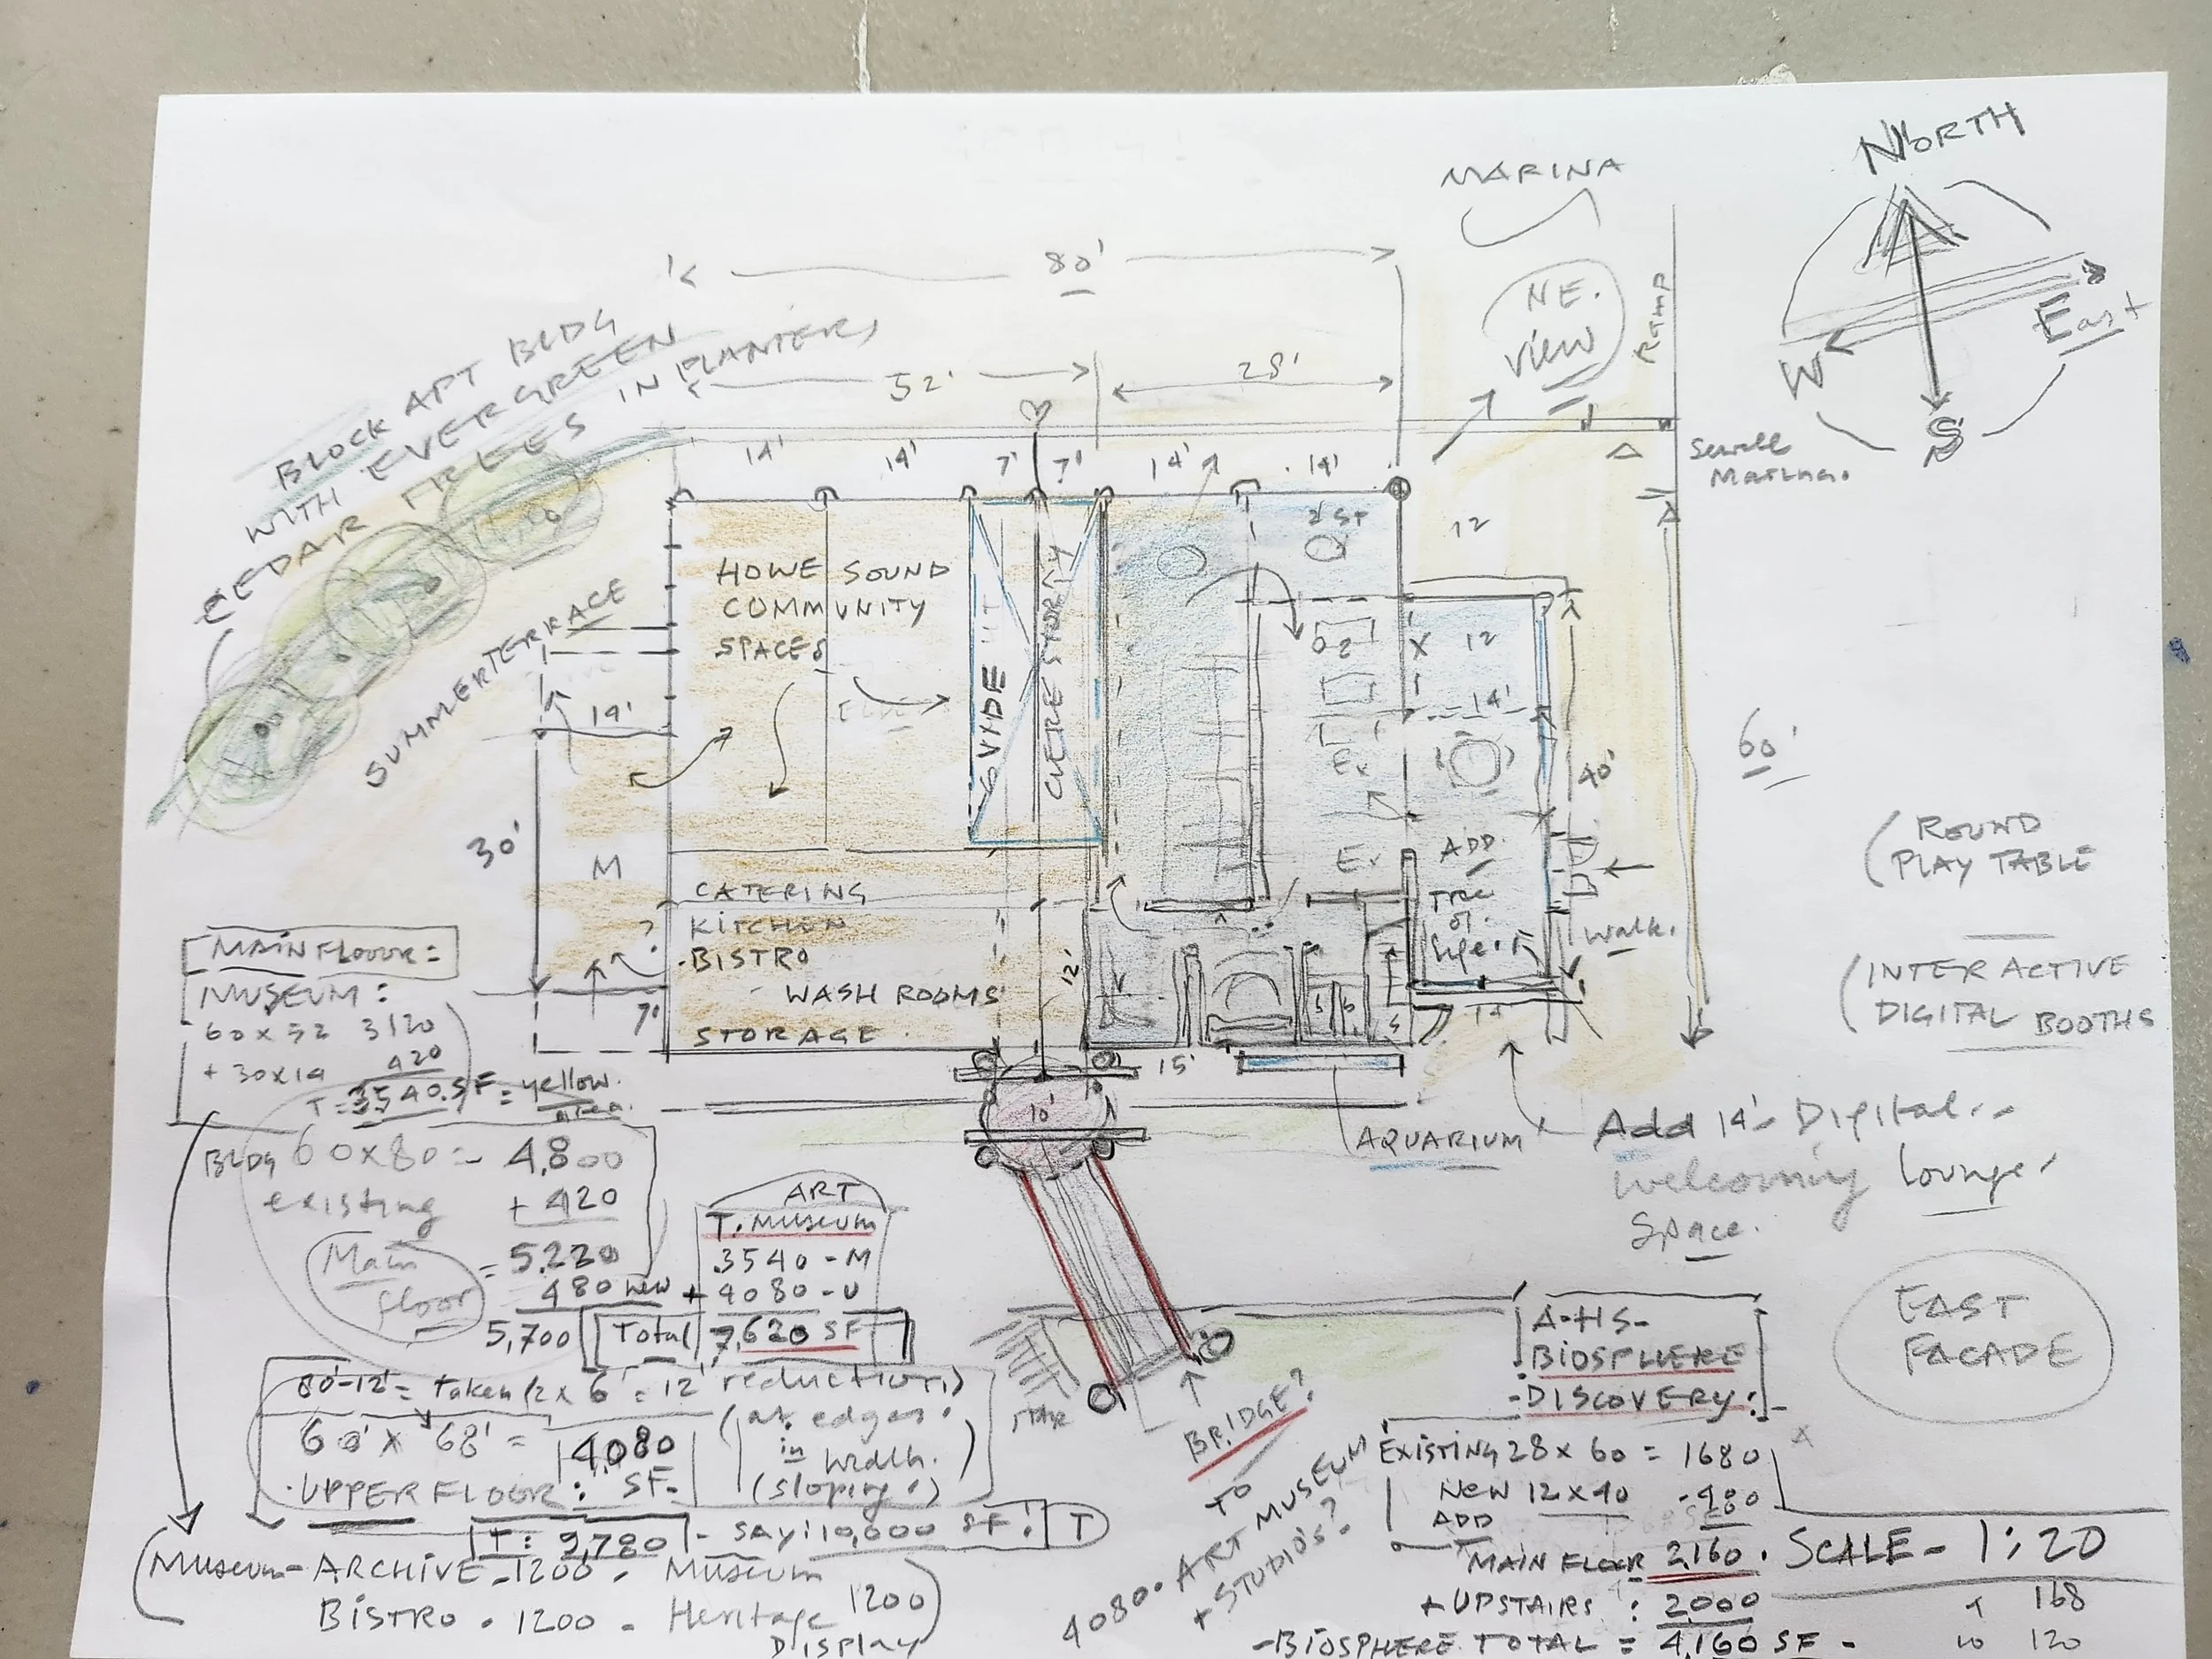 NORTH
MARINA
80'
NE.
VIEW
Ramp
East
W
S
BLOCK APT BLDG
WITH EVERGREEN
CEDAR TREES IN PLANTERS
52'
28'
14' 14' 7' 7' 14' 14'
Sewell
Marina.
12
HOWE SOUND
COMMUNITY
SPACES
CLERE STORY
SUMMER TERRACE
14'
12
X
14'
Ex
Ex
40'
60'
30'
M
ADD.
TREE
OF
life.
walk.
CATERING
KITCHEN
BISTRO
WASH ROOMS
STORAGE
?
7'
12'
15'
14
10'
(ROUND
PLAY TABLE
(INTERACTIVE
DIGITAL BOOTHS
AQUARIUM
Add 14'- Digital
welcoming lounge
Space.
MAIN FLOOR =
MUSEUM:
60 x 52 3120
+ 30x14 420
T = 3540.SF = yellow.
area.
BLDG 60x80 = 4,800
existing + 420
Main
floor
= 5.220
480 new
5,700
ART
T. MUSEUM
3540 - M
+ 4080 - U
Total 7,620 SF
80'-12' = taken (2 x 6' = 12' reduction)
(at edges.
in
width.
(sloping.)
60' x 68' = 4,080
UPPER FLOOR: SF.
T: 9,780 - say: 10,000 SF! T
(Museum - ARCHIVE - 1200 - Museum
BISTRO - 1200 - Heritage 1200
DISPLAY
BRIDGE?
TO
4080. ART MUSEUM
+ STUDIOS?
A-HS-
BIOSPHERE
-DISCOVERY:
EAST
FACADE
EXISTING 28 x 60 = 1680
NEW 12 x 40 480
ADD
MAIN FLOOR 2,160.
+ UPSTAIRS : 2,000
- BIOSPHERE TOTAL = 4,160 SF -
SCALE - 1:20
168
120